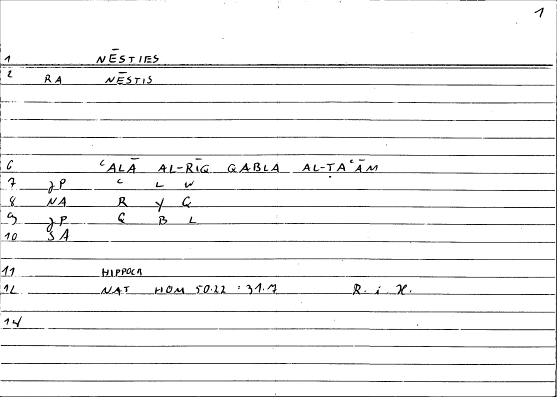 1
1 NĒSTIES
2 RA NĒSTIS
6 ʿALĀ AL-RĪQ QABLA AL-ṬAʿĀM
7 ʿ L W
8 NA R Y Q
9 Q B L
10 SA
11 HIPPOCR
12 NAT HOM 50.22 : 31.7 R. i H.
14